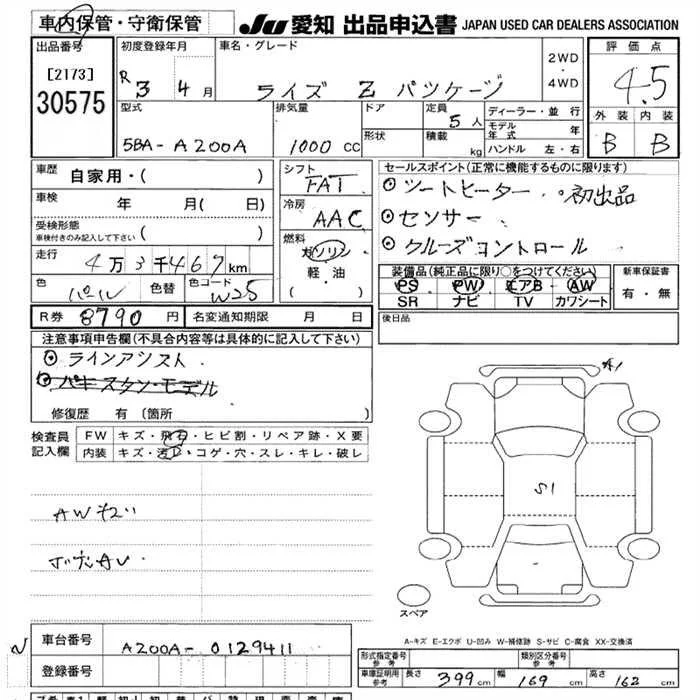 車内保管・守衛保管 JU 愛知 出品申込書 JAPAN USED CAR DEALERS ASSOCIATION
出品番号
[2173]
30575
初度登録年月
R 3 4 月
車名・グレード
ライズ Z パッケージ
2WD
・
4WD
評価点
4.5
外装 内装
B B
型式
5BA-A200A
排気量
1000 CC
ドア
形状
定員
5 人
積載
kg
ディーラー・並行
モデル年式 年
ハンドル 左・右
車歴
自家用・( )
車検 年 月 ( 日)
受検形態
車検付きのみ記入して下さい ( )
走行
4 万 3 千 467 km
色
パール
色替
色コード
W25
シフト
FAT
冷房
AAC
燃料
ガソリン
軽・油
( )
セールスポイント(正常に機能するものに限ります)
シートヒーター 初出品
センサー
クルーズコントロール
装備品(純正品に限り○をつけてください)
PS PW エアB AW
SR ナビ TV カワシート
新車保証書
有・無
R券 8790 円 名変通知期限 月 日
後日品
注意事項申告欄(不具合内容等は具体的に記入して下さい)
ラインアシスト
パキスタン・モデル
修復歴 有 (箇所 )
検査員
記入欄
FW キズ・飛石・ヒビ割・リペア跡・X要
内装 キズ・汚レ・コゲ・穴・スレ・キレ・破レ
AWキズ
S1
スペア
A-キズ E-エクボ U-凹み W-補修跡 S-サビ C-腐食 XX-交換済
車台番号
A200A-0129411
登録番号
形式指定番号
参考
類別区分番号
参考
車庫証明用
参考
長さ 399 cm 幅 169 cm 高さ 162 cm